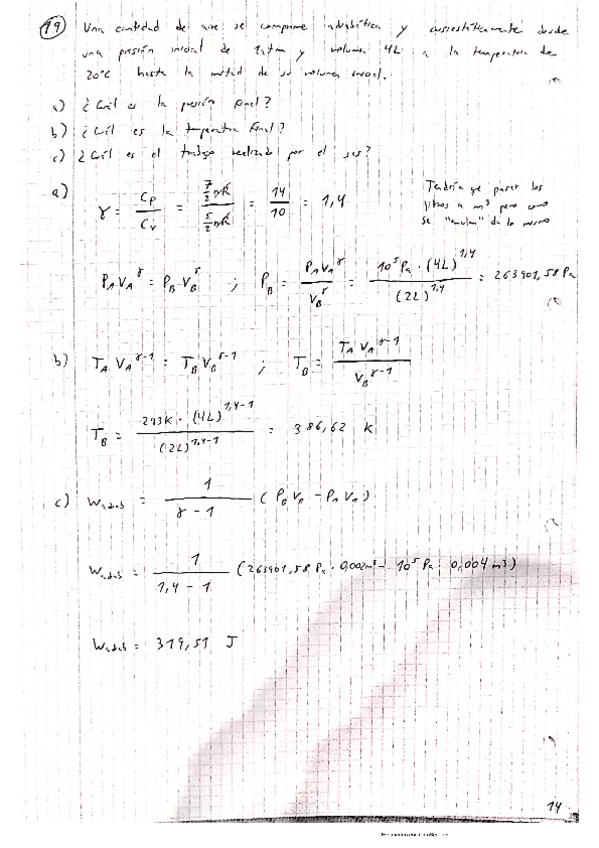 19) Una cantidad de aire se comprime adiabática y cuasiestáticamente desde
una presión inicial de 1 atm y volumen 4L a la temperatura de
20°C hasta la mitad de su volumen inicial.
a) ¿Cuál es la presión final?
b) ¿Cuál es la temperatura final?
c) ¿Cuál es el trabajo realizado por el gas?
a) γ = Cp/Cv = (7/2 nR)/(5/2 nR) = 14/10 = 1,4
Tendría que pasar los
litros a m³ pero como
se "anulan" da lo mismo
P_A V_A^γ = P_B · V_B^γ ; P_B = P_A V_A^γ / V_B^γ = 10⁵ Pa · (4L)^1,4 / (2L)^1,4 = 263901,58 Pa
b) T_A V_A^γ-1 = T_B V_B^γ-1 ; T_B = T_A V_A^γ-1 / V_B^γ-1
T_B = 293K · (4L)^1,4-1 / (2L)^1,4-1 = 386,62 K
c) W_adiab = 1/(γ - 1) (P_B V_B - P_A V_A)
W_adiab = 1/(1,4 - 1) (263901,58 Pa · 0,002m³ - 10⁵ Pa · 0,004 m³)
W_adiab = 319,51 J
14